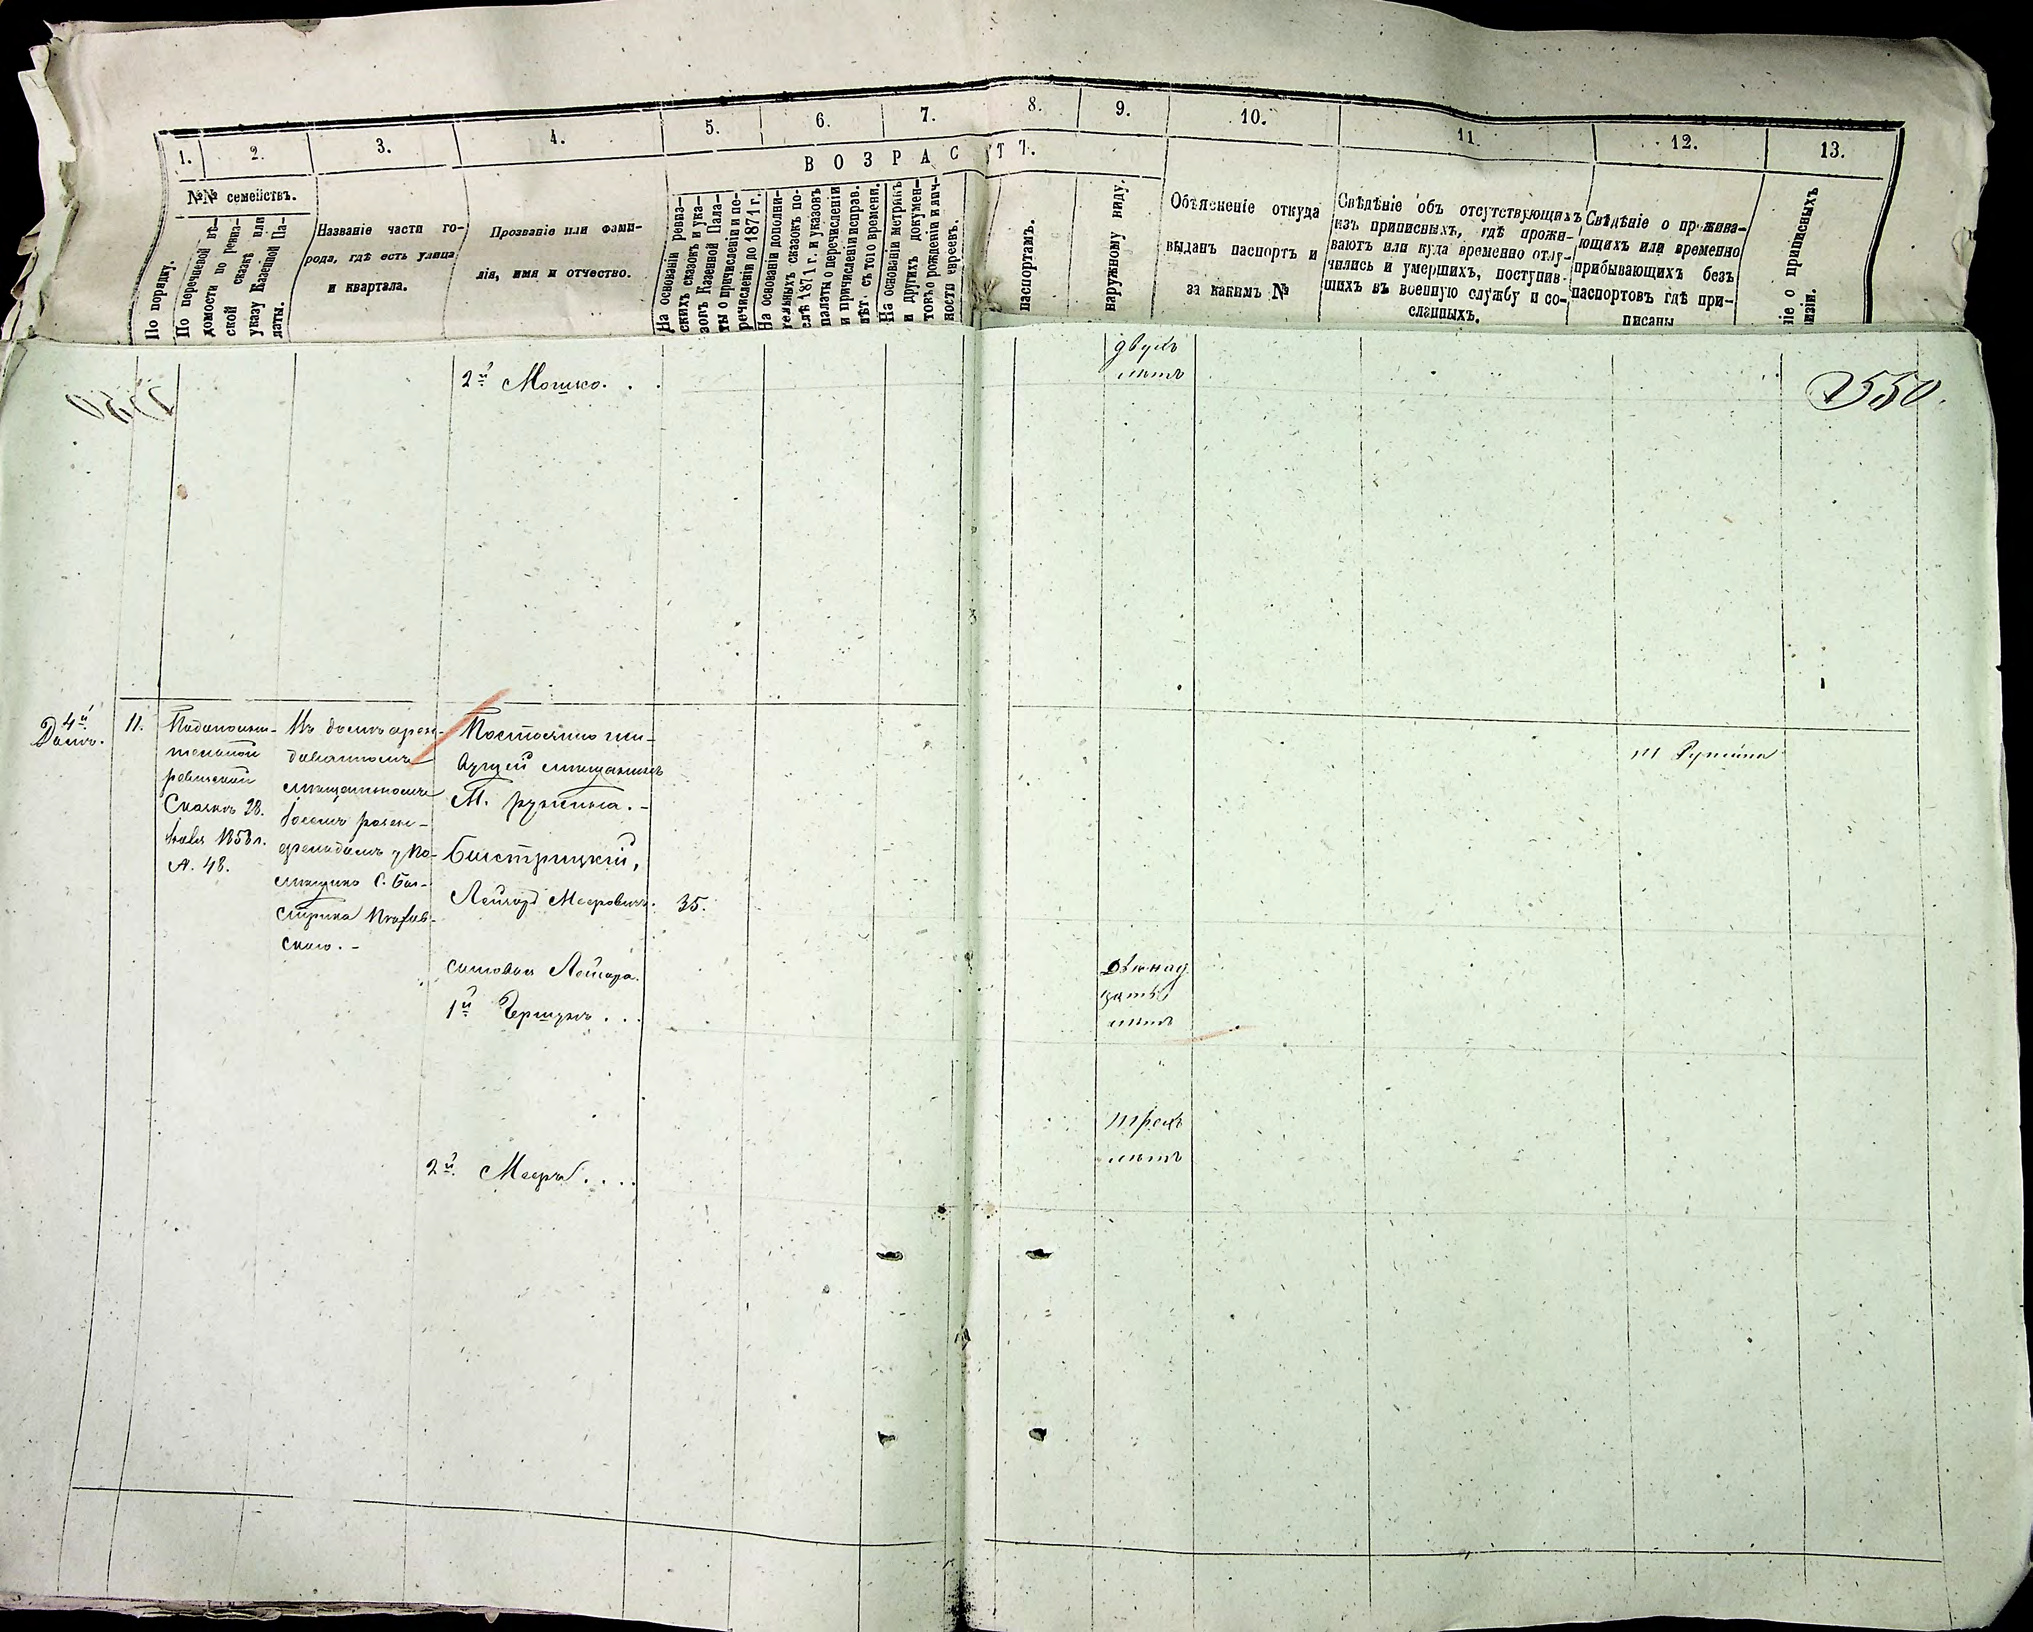 1. 2. 3. 4. 5. 6. 7. 8. 9. 10. 11. 12. 13.
ВОЗРАСТЪ.
№№ семействъ.
По порядку.
По перечневой вѣ-
домости по ревиз-
ской сказкѣ или
указу Казенной Па-
латы.
Названіе части го-
рода, гдѣ есть улица
и квартала.
Прозваніе или фами-
лія, имя и отчество.
На основаніи ревиз-
скихъ сказокъ и ука-
зовъ Казенной Пала-
ты о причисленіи и пе-
речисленіи до 1871 г.
На основаніи дополни-
тельныхъ сказокъ по-
слѣ 1871 г. и указовъ
палаты о перечисленіи
и причисленіи исправ.
лѣт. съ того времени.
На основаніи метрикъ
и другихъ докумен-
товъ о рожденіи и лич-
ности евреевъ.
паспортамъ.
наружному виду.
Объясненіе откуда
выданъ паспортъ и
за какимъ №
Свѣдѣніе объ отсутствующихъ
изъ приписныхъ, гдѣ прожи-
ваютъ или куда временно отлу-
чились и умершихъ, поступив-
шихъ въ военную службу и со-
сланныхъ.
Свѣдѣніе о прожива-
ющихъ или временно
прибывающихъ безъ
паспортовъ гдѣ при-
писаны
ніе о приписныхъ
визіи.
2й Мошко. . .
двухъ
лѣтъ
2550.
4й
Домъ.
11.
Подополни-
тельной
ревизской
Сказкѣ 28.
1858 г.
№. 48.
Въ домѣ арен-
дованномъ
мѣщаниномъ
розен-
фельдомъ у По-
мѣщика С. Бы-
стрика
скаго. –
Постоянно жи-
вущей мѣщанинъ
М. ружина. –
Быстрицкій,
Лейзоръ Мееровичъ.
35.
м Ружина
сыновья Лейзора.
1й Гершукъ . . .
Двѣнад
цать
лѣтъ
2й. Мееръ . . . .
трехъ
лѣтъ